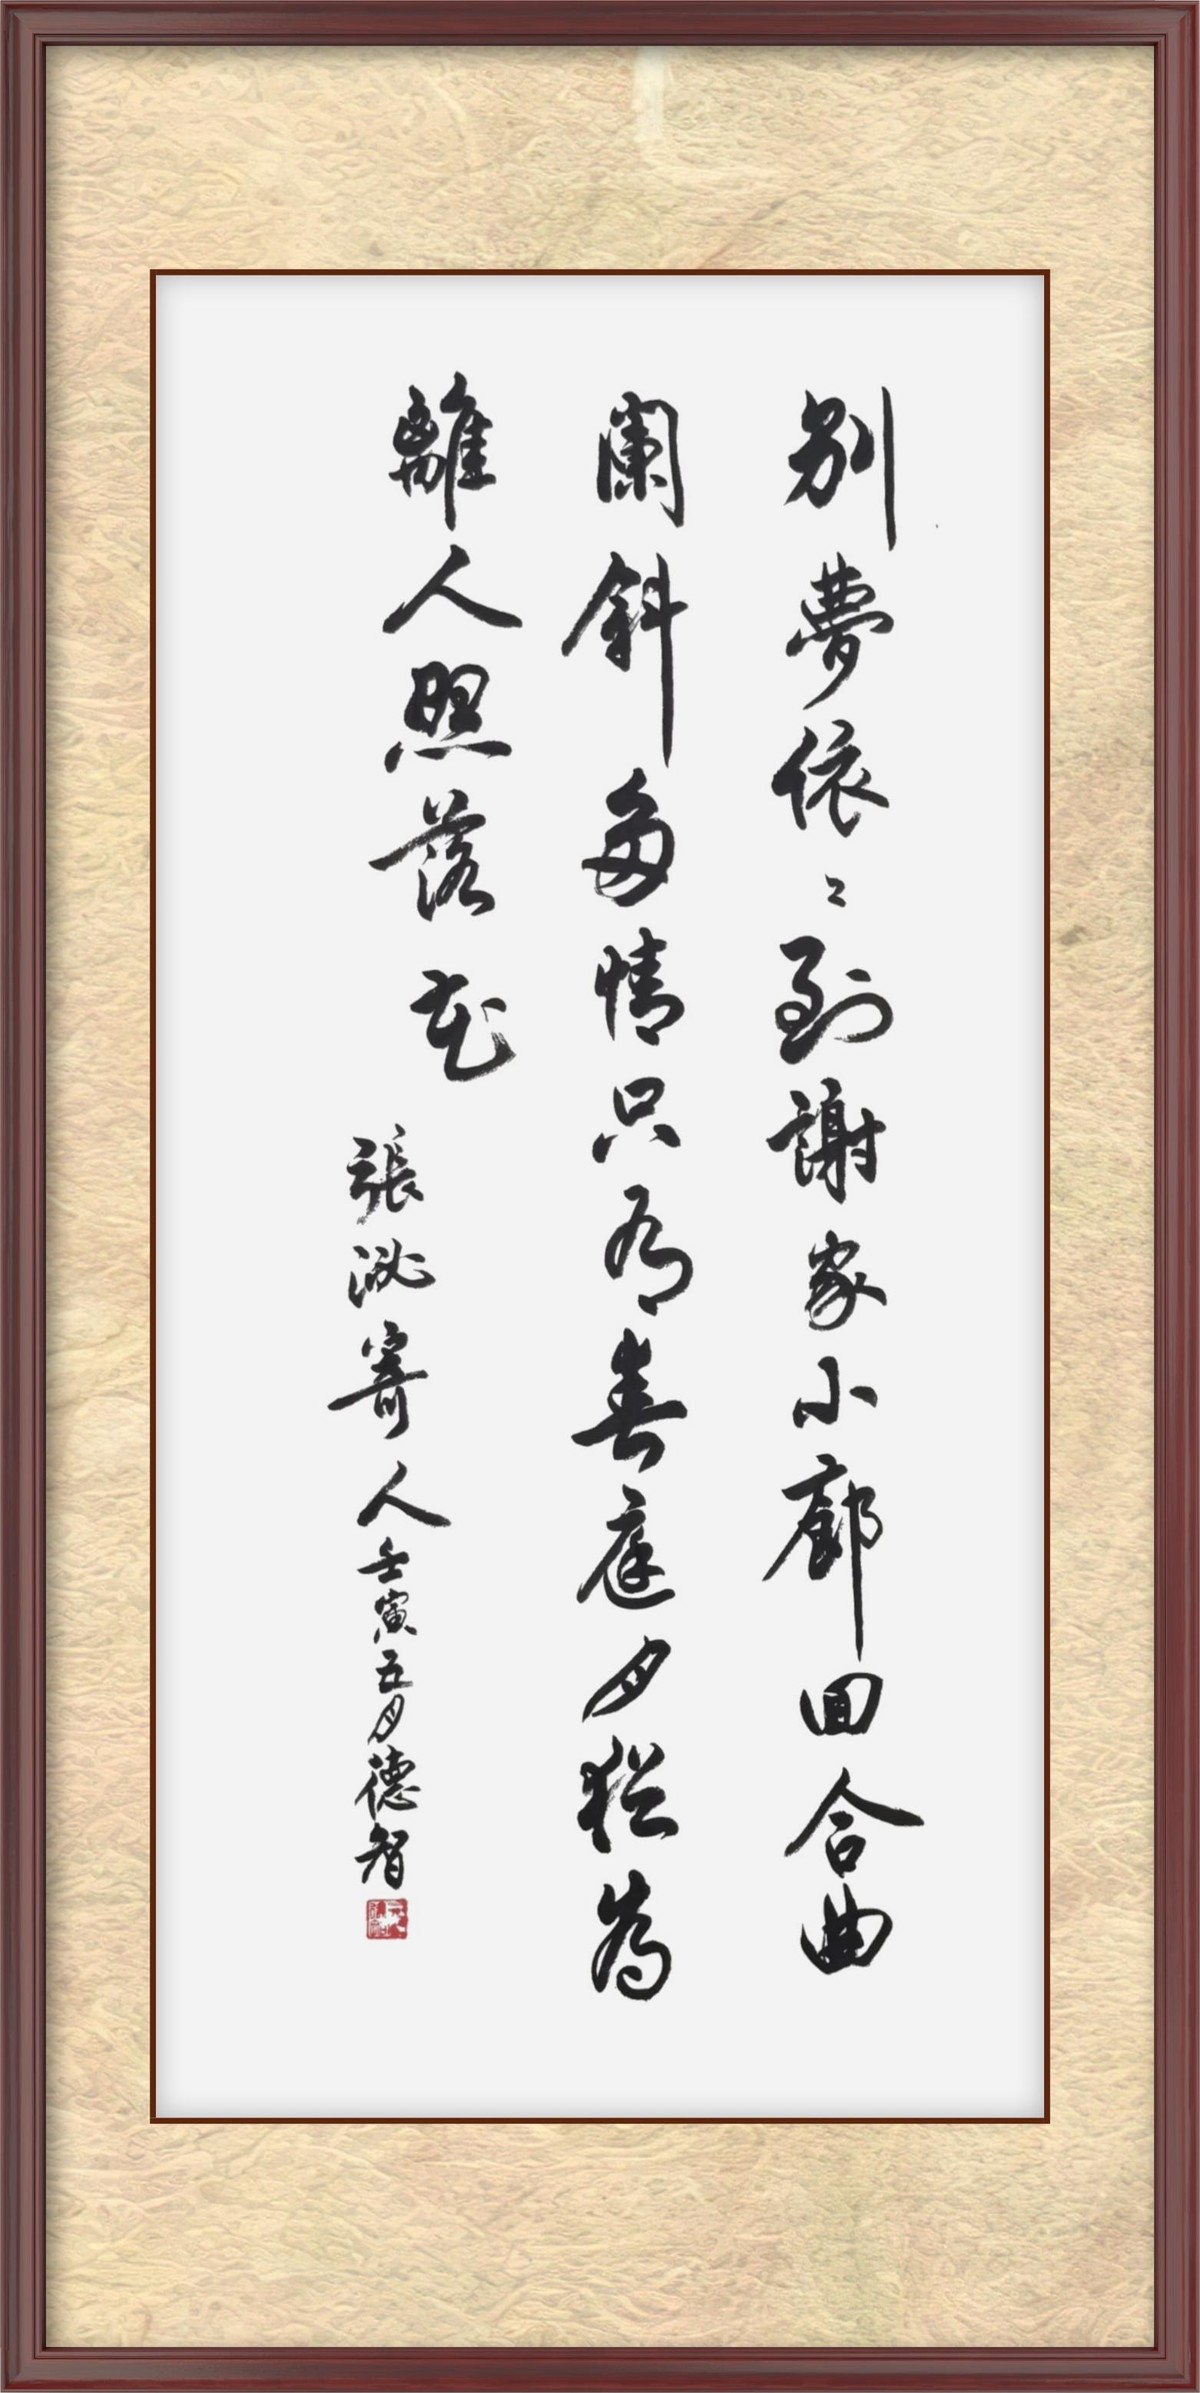 別夢依〻到謝家小廊回合曲
闌斜多情只有春庭月猶為
離人照落花
張泌寄人
壬寅五月德智